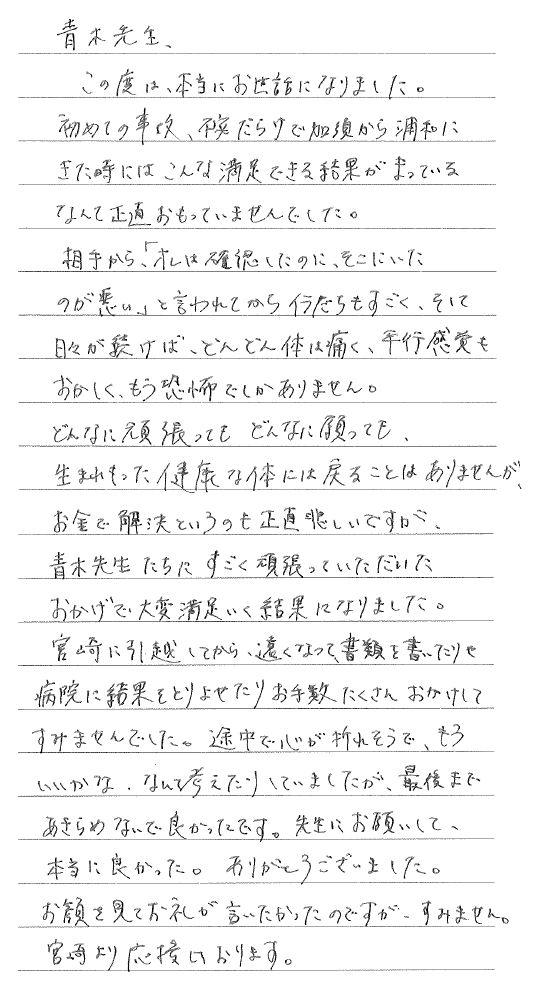 青木先生、
この度は、本当にお世話になりました。
初めての事故、不安だらけで加須から浦和に
きた時にはこんな満足できる結果がまっている
なんて正直おもっていませんでした。
相手から、「オレは確認したのに、そこにいた
のが悪い。」と言われてから行だちもすごく、そして
日々が続けば、どんどん体は痛く、平行感覚も
おかしく、もう恐怖でしかありません。
どんなに頑張っても どんなに願っても、
生まれもった健康な体には戻ることはありませんが、
お金で解決というのも正直悲しいですが、
青木先生たちに すごく頑張っていただいた
おかげで大変満足いく結果になりました。
宮崎に引越してから、遠くなって、書類を書いたりや
病院に結果をとりよせたりお手数たくさんおかけして
すみませんでした。途中で心が折れそうで、もう
いいかな、なんて考えたりしていましたが、最後まで
あきらめないで良かったです。先生にお願いして、
本当に良かった。 ありがとうございました。
お顔を見てお礼が言いたかったのですが、すみません。
宮崎より応援しております。